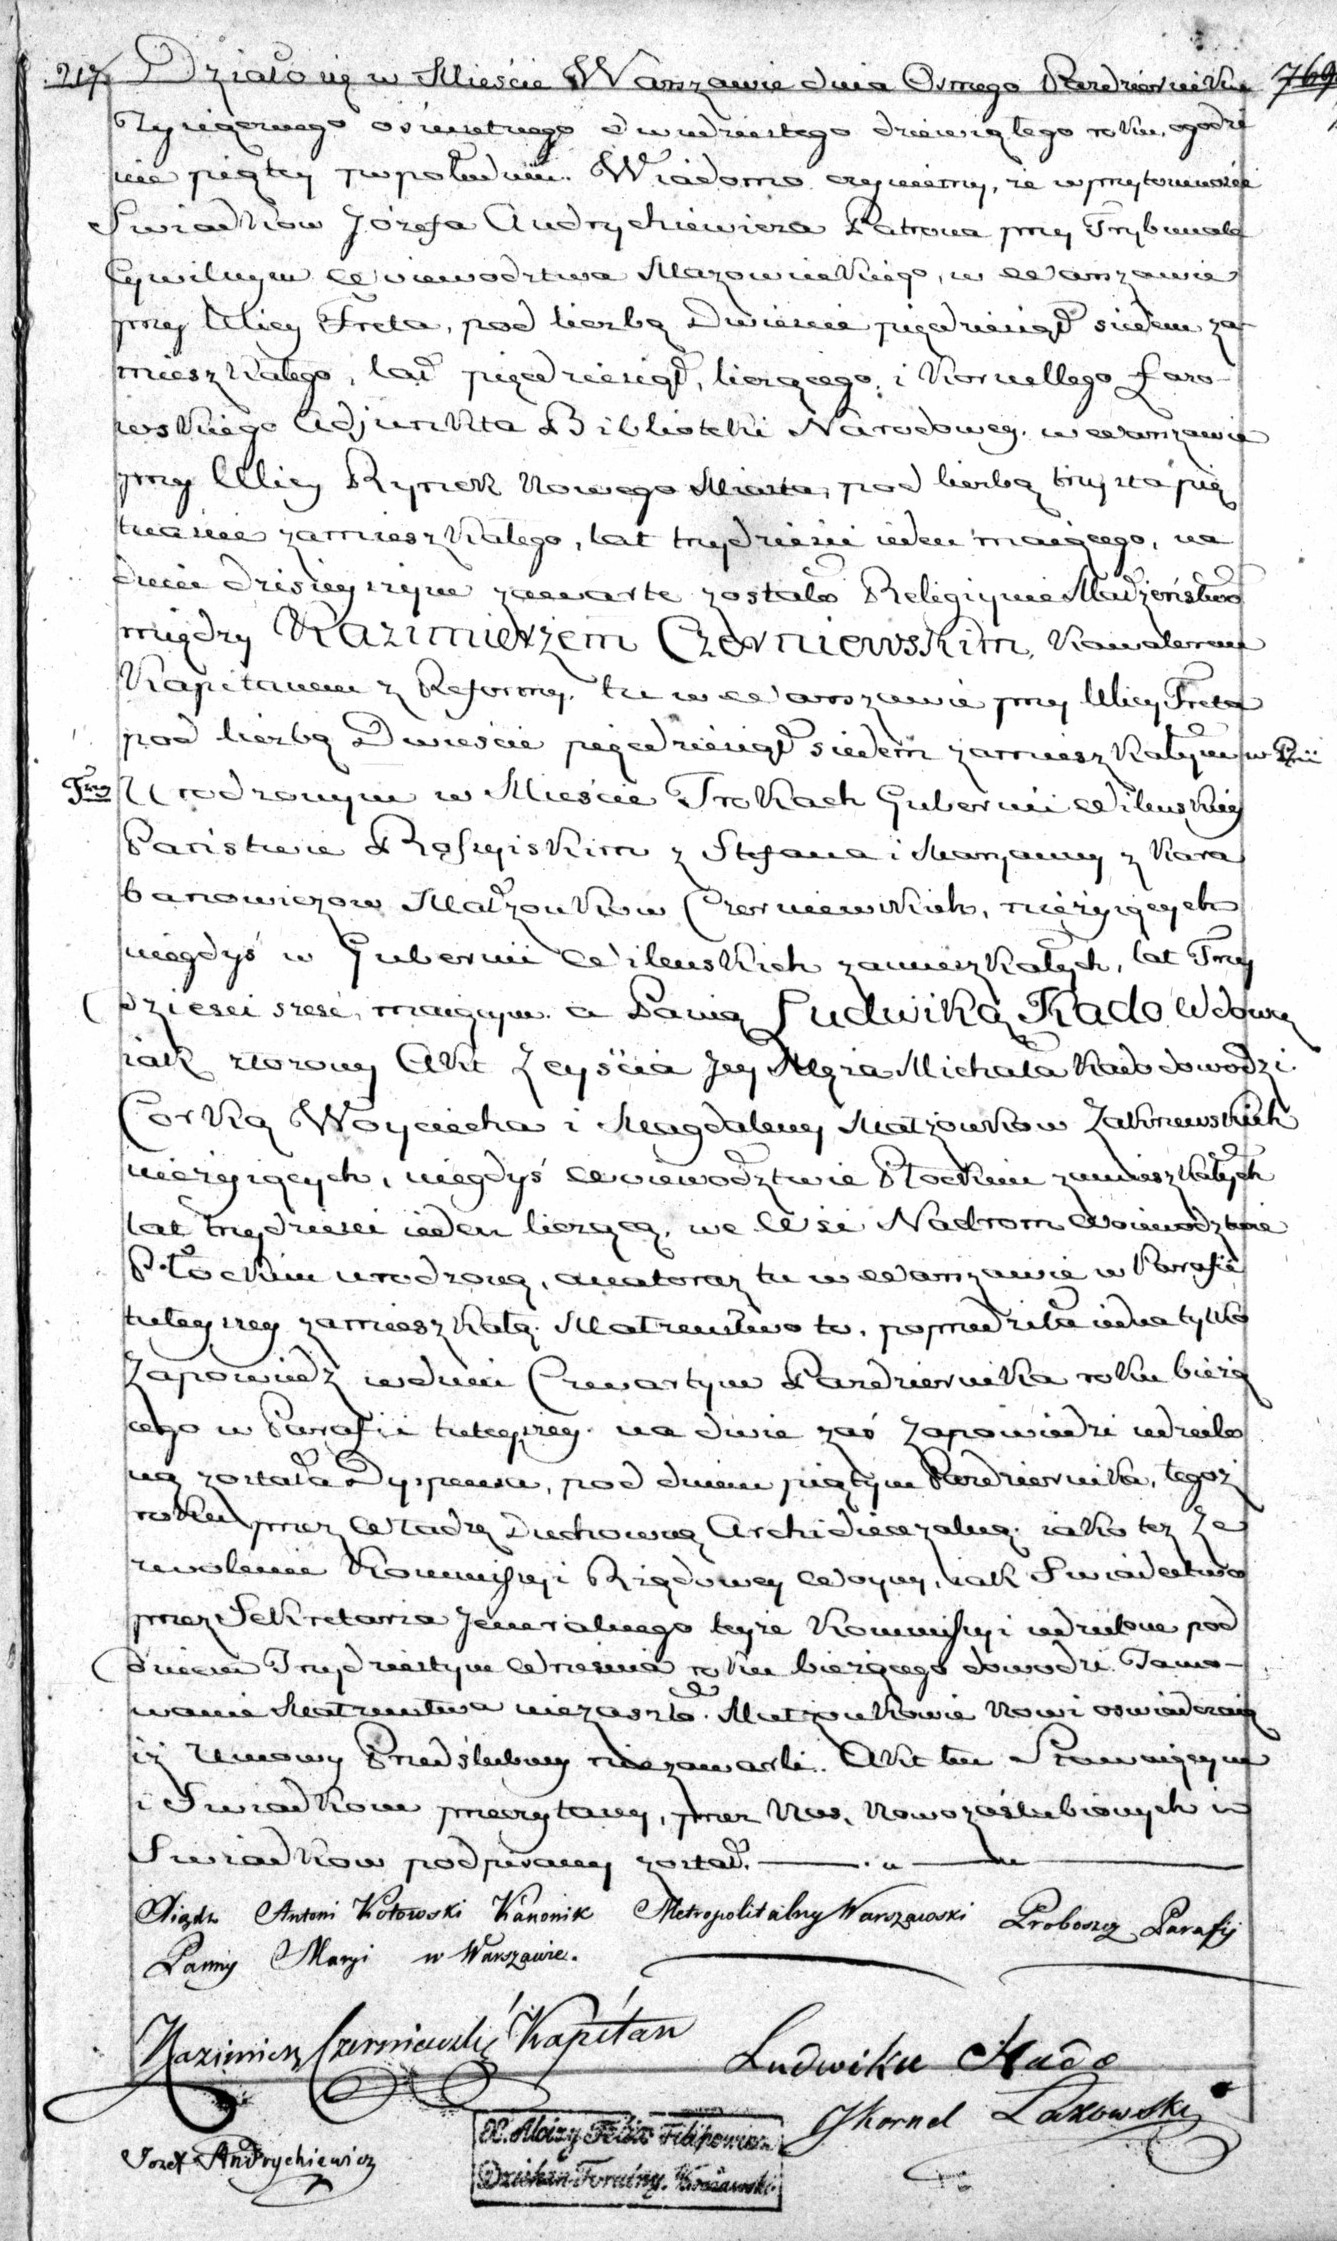 217. Działo się w Mieście Warszawie dnia Osmego Pazdziernika 769
Tysiącznego ośmsetnego dwudziestego dziewiątego roku, ogodzi
nie piątey popołudniu. Wiadomo czyniemy, że wprzytomności
Swiadków Józefa Andrychiewicza Patrona przy Trybunale
Cywilnym Wojewodztwa Mazowieckiego, w Warszawie
przy Ulicy Freta, pod liczbą Dwieście pięćdziesiąt siedem za-
mieszkałego, lat pięćdziesiąt, liczącego, i Kornellego Łazo-
wskiego Adjunkta Biblioteki Narodowey. w Warszawie
przy Ulicy Rynek Nowego Miasta, pod liczbą trzysta pię
tnaście zamieszkałego, lat trzydzieści ieden maiącego, na
dniu dzisieyszym zawarte zostało Religiynie Małżeństwo
między Kazimierzem Czerniewskim, Kawalerem
Kapitanem z Reformy. tu w Warszawie przy Ulicy Freta
pod liczbą Dwieście pięćdziesiąt siedem zamieszkałym w
Urodzonym w Mieście Trokach Gubernii Wileńskiey
Państwie Rossyiskim z Stefana i Maryanny z Kara
banowiczow Małżonkow Czerniewskich, nieżyiących
niegdyś w Gubernii Wileńskich zamieszkałych, lat Trzy
dzieści sześć, maiącym. a Panią Ludwiką Kado Wdową
iak złożony Akt Zeyścia Jey Męża Michała Kado dowodzi.
Corką Woyciecha i Magdaleny Małżonkow Zakrzewskich
nieżyiących, niegdyś Woiewodztwie Płockim zamieszkałych
lat trzydzieści ieden liczącą, we Wsi Nadrom Woiewodztwie
Płockim urodzoną, ateraz tu w Warszawie w Parafii
tuteyszey zamieszkałą. Małżenstwo to, poprzedziła iedna tylko
Zapowiedz wdniu Czwartym Pazdziernika roku bieżą
cego w Parafii tuteyszey. na dwie zaś Zapowiedzi udzielo
ną została Dyspensa, pod dniem piątym Pazdziernika, tegoż
roku przez Władzę Duchowną Archidiecezalną. iako tez Ze
zwolenie Kommissyi Rządowey Woyny, iak Swiadectwo
przez Sekretarza Jeneralnego teyże Kommissyi udzielone pod
dniem Trzydziestym Września roku bieżącego dowodzi. Tamo-
wanie Małzenstwa niezaszło. Małżonkowie Nowi oswiadczaią
iż Umowy Przedślubney niezawarli. Akt ten Stawaiącym
i Swiadkom przeczytany, przez Nas, Nowozaślubionych i
Swiadkow podpisany został.
Xiądz Antoni Kotowski Kanonik Metropolitalny Warszawski Proboszcz Parafij
Panny Maryi w Warszawie.
Kazimierz Czerniewski Kapitan
Ludwika Kado
Kornel Łazowski
Jozef Andrychiewicz
X. Aloizy Felix Filipowicz
Dziekan Foralny. Warszawski.